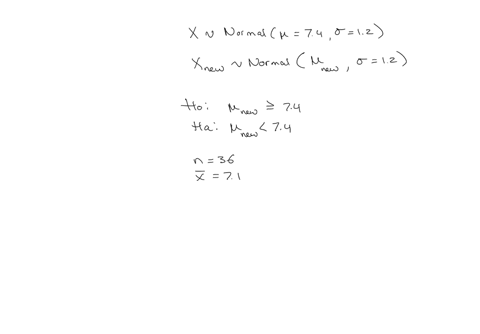 X ~ Normal(μ = 7.4, σ = 1.2)
Xnew ~ Normal(μnew, σ = 1.2)
Ho: μnew ≥ 7.4
Ha: μnew < 7.4
n = 36
x̄ = 7.1